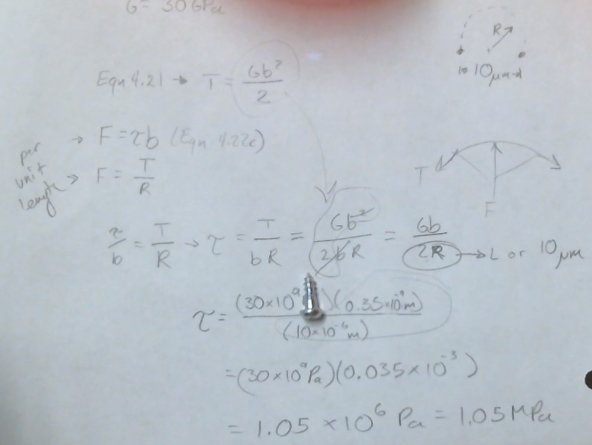 G = 30 GPa
R
10 μm
Eqn 4.21 → T = Gb²/2
per unit length
→ F = τb (Eqn 4.22c)
→ F = T/R
T
F
τ/b = T/R → τ = T/bR = Gb²/2bR = Gb/2R → L or 10 μm
τ = (30×10⁹ )(0.35×10⁻⁹m)/(10×10⁻⁶m)
=(30×10⁹Pa)(0.035×10⁻³)
= 1.05 ×10⁶ Pa = 1.05 MPa